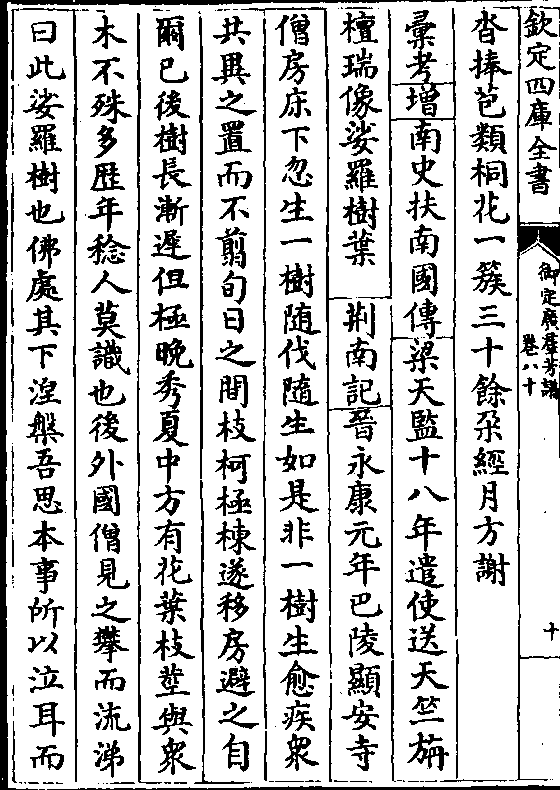 欽定四庫全書
御定廣羣芳譜
卷八十
十
沓捧苞類桐花一簇三十餘朶經月方謝
彙考增南史扶南國傳梁天監十八年遣使送天竺旃
檀瑞像娑羅樹葉 荆南記晉永康元年巴陵顯安寺
僧房床下忽生一樹隨伐隨生如是非一樹生愈疾衆
共異之置而不翦旬日之間枝柯極棟遂移房避之自
爾已後樹長漸遲但極晚秀夏中方有花葉枝莖與衆
木不殊多歷年稔人莫識也後外國僧見之攀而流涕
曰此娑羅樹也佛處其下湼槃吾思本事所以泣耳而